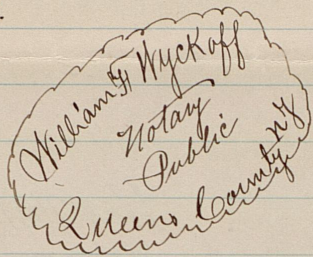 William F Wyckoff
Notary
Public
Queens County NY